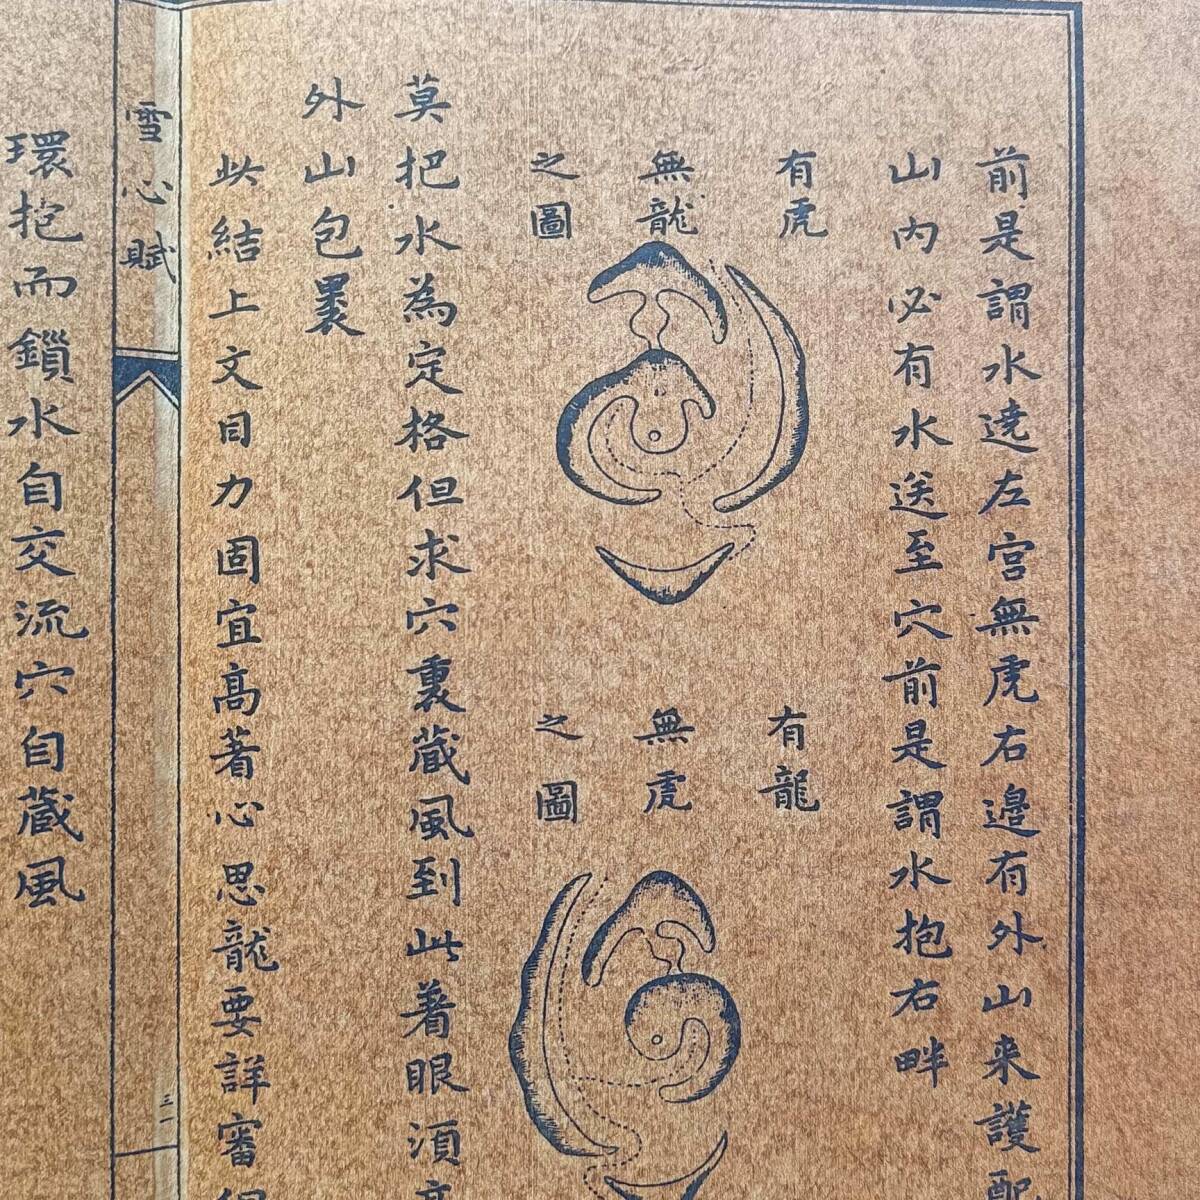 前是謂水遶左宮無虎右邊有外山来護配
山內必有水送至穴前是謂水抱右畔
有虎
無龍
之圖
有龍
無虎
之圖
莫把水為定格但求穴裏蔵風到此着眼須
外山包裹
此結上文目力固宜高著心思龍要詳審
雪心賦
三一
環抱而鎖水自交流穴自蔵風